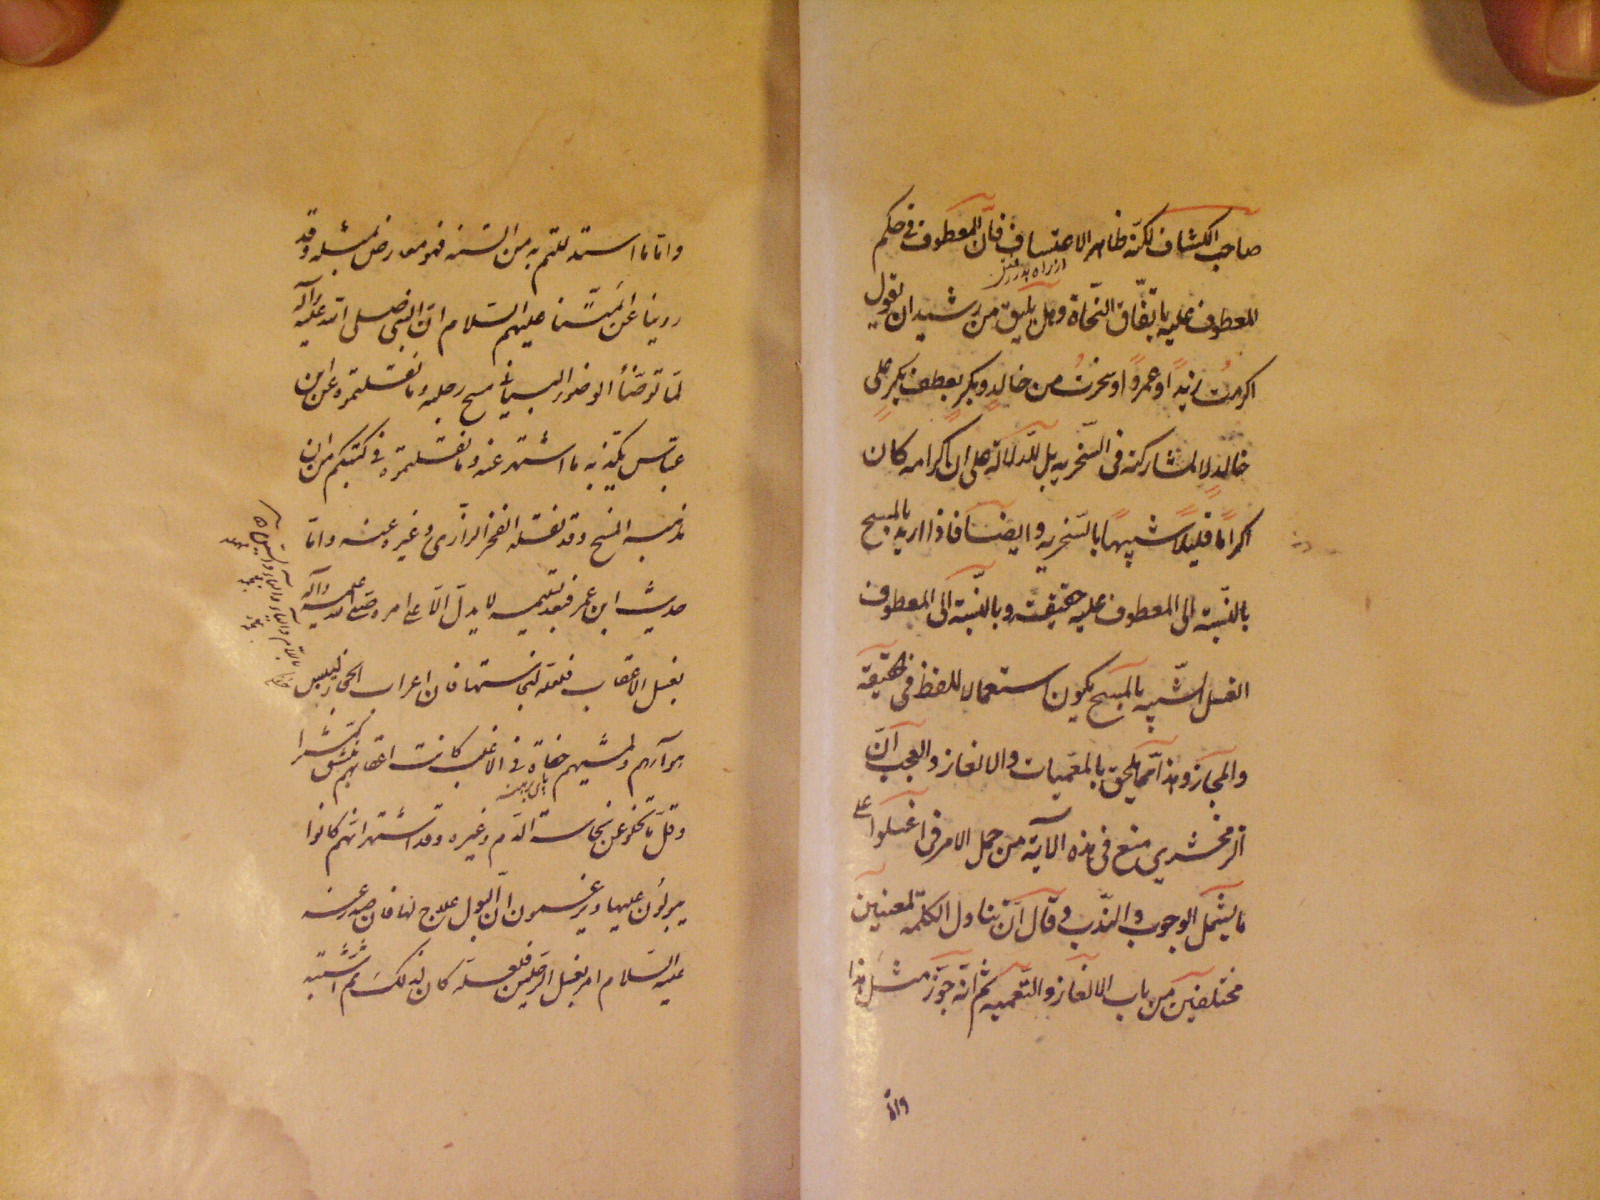 صاحب الكشاف لكنّه ظاهر الاعتساف فانّ المعطوف فى حكم
از راه بدر رفتن
المعطوف عليه باتّفاق النّحاة وهل يليق من رشيد ان يقول
اكرمتُ زيداً او عمرواً او سخرتُ من خالدٍ وبكرٍ بعطف بكرٍ على
خالدٍ لا لمشاركته فى السّخريه بل للدّلالة على ان اكرامه كان
اكراماً قليلاً شبيهاً بالسّخريه وايضاً فاذا اريد بالمسح
بالنّسبة الى المعطوف عليه حقيقته وبالنّسبة الى المعطوف
الغسل الشّبيه بالمسح يكون استعمال اللفظ فى حقيقة
والمجاز وهذا ممّا يلحق بالمعمّيات والالغاز والعجب انّ
الزمخشرى منع فى هذه الآية من حمل الامر فى اغسلوا على
ما يشمل الوجوب والنّدب وقال انّ تناول الكلمة لمعنيين
مختلفين من باب الالغاز والتّعميه ثم انّه جوّز مثل هذا
وامّا
وامّا ما استدللتم به من السّنه فهو معارض بمثله وقد
روينا عن ائمّتنا عليهم السّلام انّ النبى صلى الله عليه وآله
لمّا توضّأ الوضوء البيانى مسح رجليه وما نقلتموه عن ابن
عبّاس يكذّبه ما اشتهر عنه وما نقلتموه فى كتبكم من ان
مذهبه المسح وقد نقله الفخر الرّازى وغيره عنه وامّا
حديث ابن عمر فبعد تسليمه لا يدلّ الّا على امره صلى الله عليه وآله
بغسل الاعقاب فلعلّه لنجاستها فان اعراب الحجاز ليبس
هوآئهم ولمشيهم حفاة فى الاغلب كانت اعقابهم تنشقّ كثيرا
پاى برهنه
وقلّ ما تخلو عن نجاسة الدّم وغيره وقد اشتهر انّهم كانوا
يبولون عليها ويزعمون انّ البول علاج لها فان صدر عنه
عليه السّلام امر بغسل الرّجلين فلعلّه كان لذلك ثم اشتبه